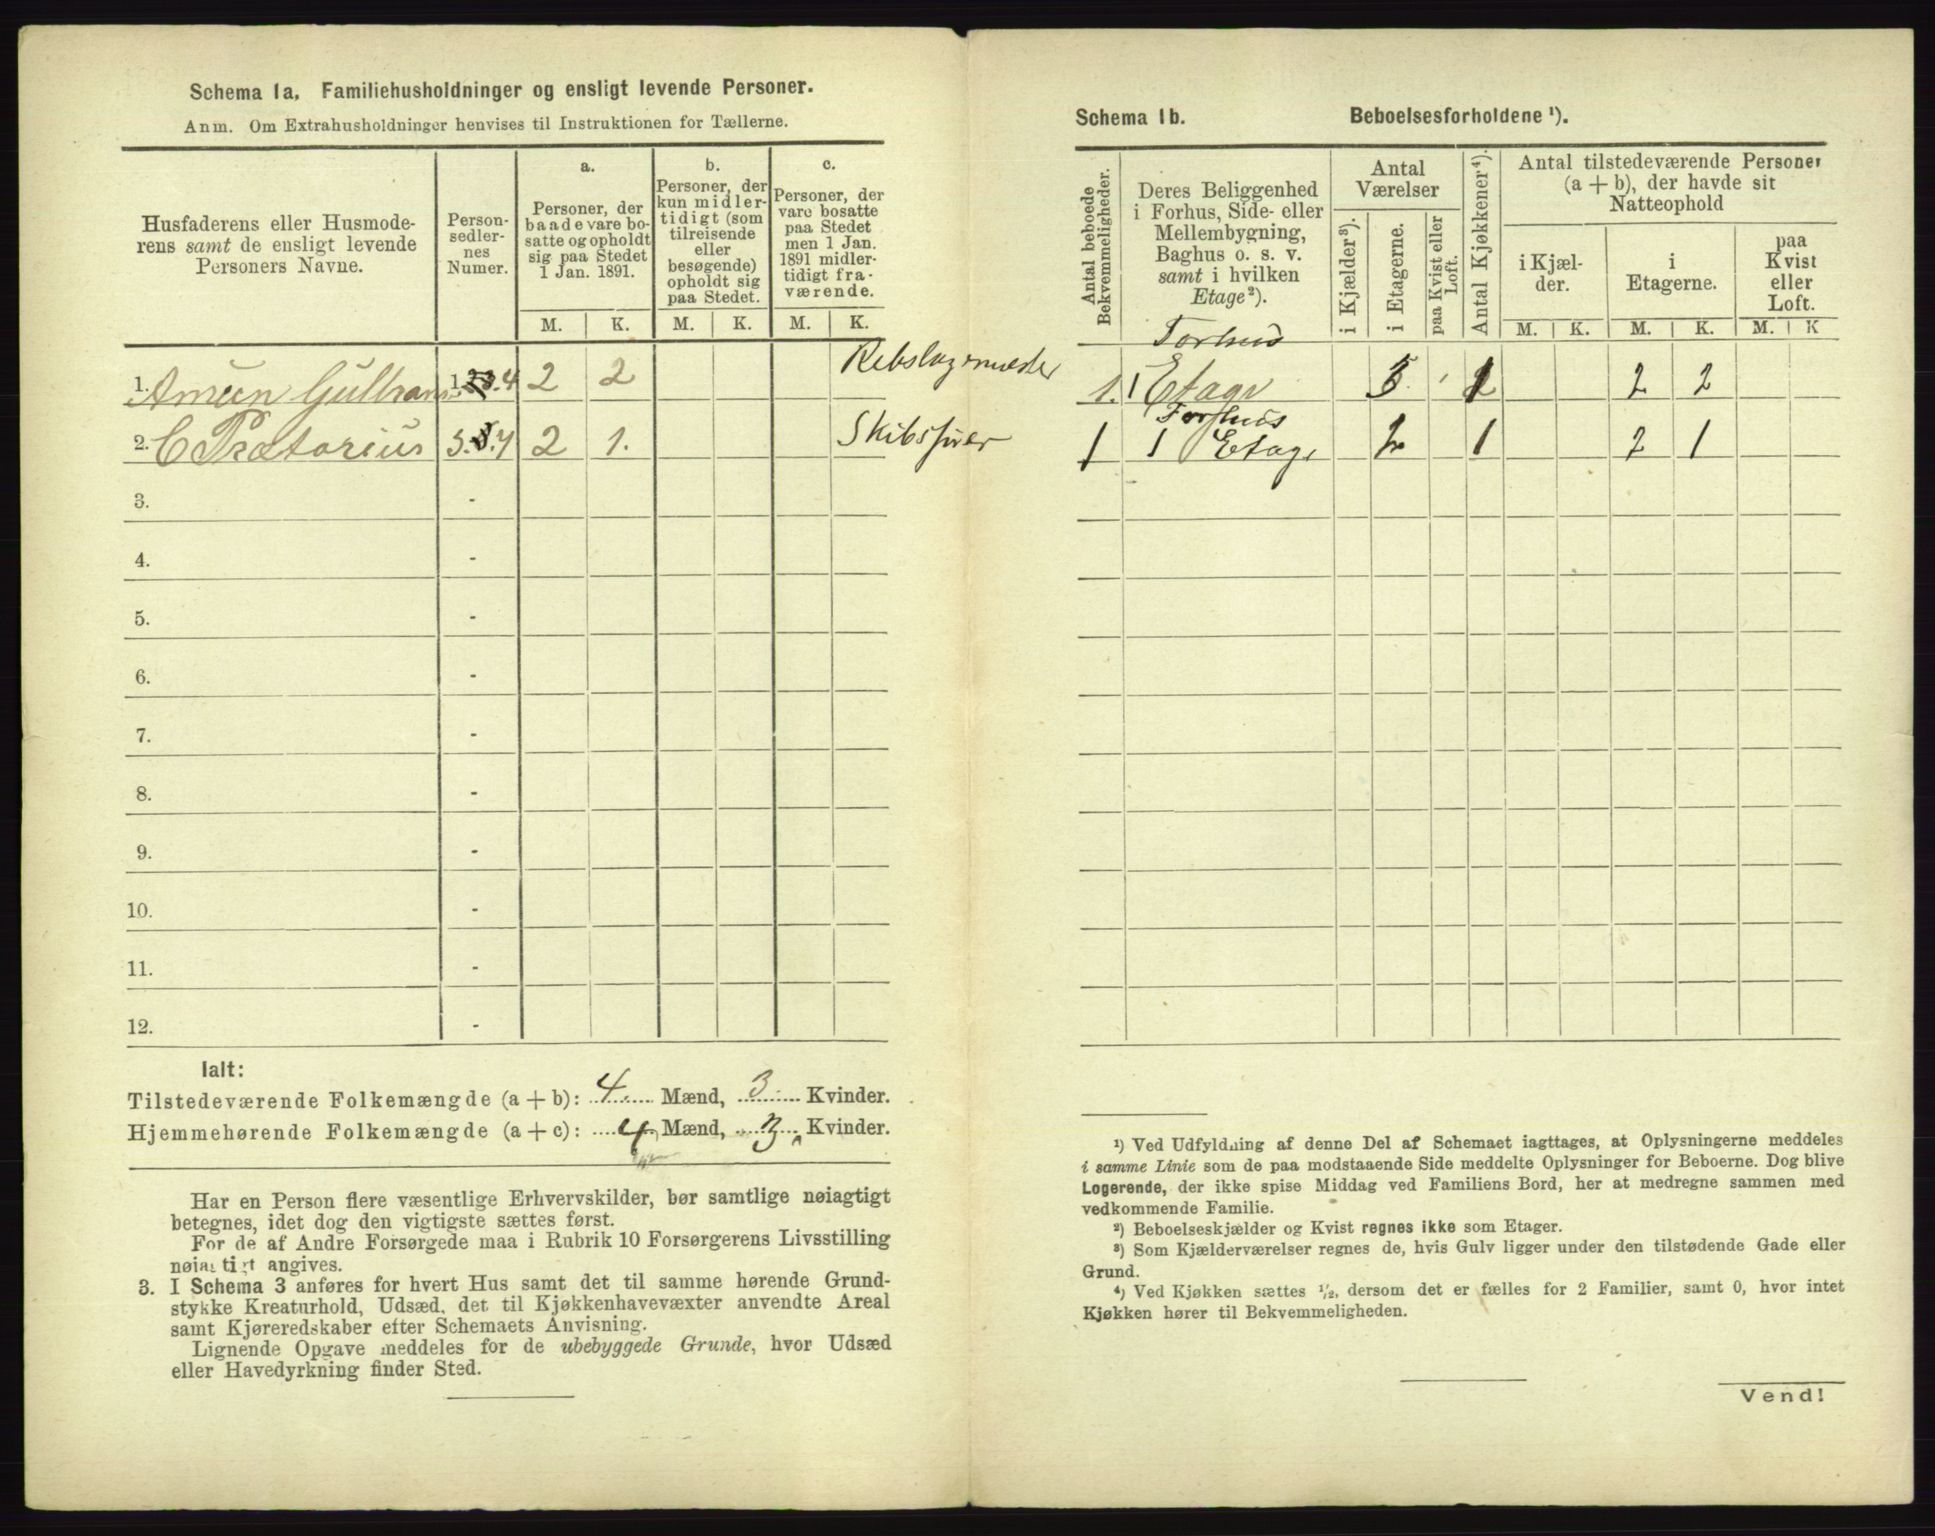 Schema 1a. Familiehusholdninger og ensligt levende Personer.
Anm. Om Extrahusholdninger henvises til Instruktionen for Tællerne.
Husfaderens eller Husmode-
rens samt de ensligt levende
Personers Navne.
Person-
sedler-
nes
Numer.
a.
Personer, der
baade vare bo-
satte og opholdt
sig paa Stedet
1 Jan. 1891.
b.
Personer, der
kun midler-
tidigt (som
tilreisende
eller
besøgende)
opholdt sig
paa Stedet.
c.
Personer, der
vare bosatte
paa Stedet
men 1 Jan.
1891 midler-
tidigt fra-
værende.
M. K. M. K. M. K.
1. Gulbrans 4 2 2 Rebslagermester
2. C Prætorius 4 2 1. Skibsfører
3. -
4. -
5. -
6. -
7. -
8. -
9. -
10. -
11. -
12. -
Ialt:
Tilstedeværende Folkemængde (a + b): 4. Mænd, 3 Kvinder.
Hjemmehørende Folkemængde (a + c): 4 Mænd, 3 Kvinder.
Har en Person flere væsentlige Erhvervskilder, bør samtlige nøiagtigt
betegnes, idet dog den vigtigste sættes først.
For de af Andre Forsørgede maa i Rubrik 10 Forsørgerens Livsstilling
nøiagtigt angives.
3. I Schema 3 anføres for hvert Hus samt det til samme hørende Grund-
stykke Kreaturhold, Udsæd, det til Kjøkkenhavevæxter anvendte Areal
samt Kjøreredskaber efter Schemaets Anvisning.
Lignende Opgave meddeles for de ubebyggede Grunde, hvor Udsæd
eller Havedyrkning finder Sted.
Schema 1b. Beboelsesforholdene ¹).
Antal beboede
Bekvemmeligheder.
Deres Beliggenhed
i Forhus, Side- eller
Mellembygning,
Baghus o. s. v.
samt i hvilken
Etage²).
Antal
Værelser
i Kjælder³).
i Etagerne.
paa Kvist eller
Loft.
Antal Kjøkkener⁴).
Antal tilstedeværende Personer
(a + b), der havde sit
Natteophold
i Kjæl-
der.
i
Etagerne.
paa
Kvist
eller
Loft.
M. K. M. K. M. K
Forhus
1. 1 Etage 5 1 2 2
Forhus
1 1 Etage 2 1 2 1
¹) Ved Udfyldning af denne Del af Schemaet iagttages, at Oplysningerne meddeles
i samme Linie som de paa modstaaende Side meddelte Oplysninger for Beboerne. Dog blive
Logerende, der ikke spise Middag ved Familiens Bord, her at medregne sammen med
vedkommende Familie.
²) Beboelseskjælder og Kvist regnes ikke som Etager.
³) Som Kjælderværelser regnes de, hvis Gulv ligger under den tilstødende Gade eller
Grund.
⁴) Ved Kjøkken sættes ½, dersom det er fælles for 2 Familier, samt 0, hvor intet
Kjøkken hører til Bekvemmeligheden.
Vend!